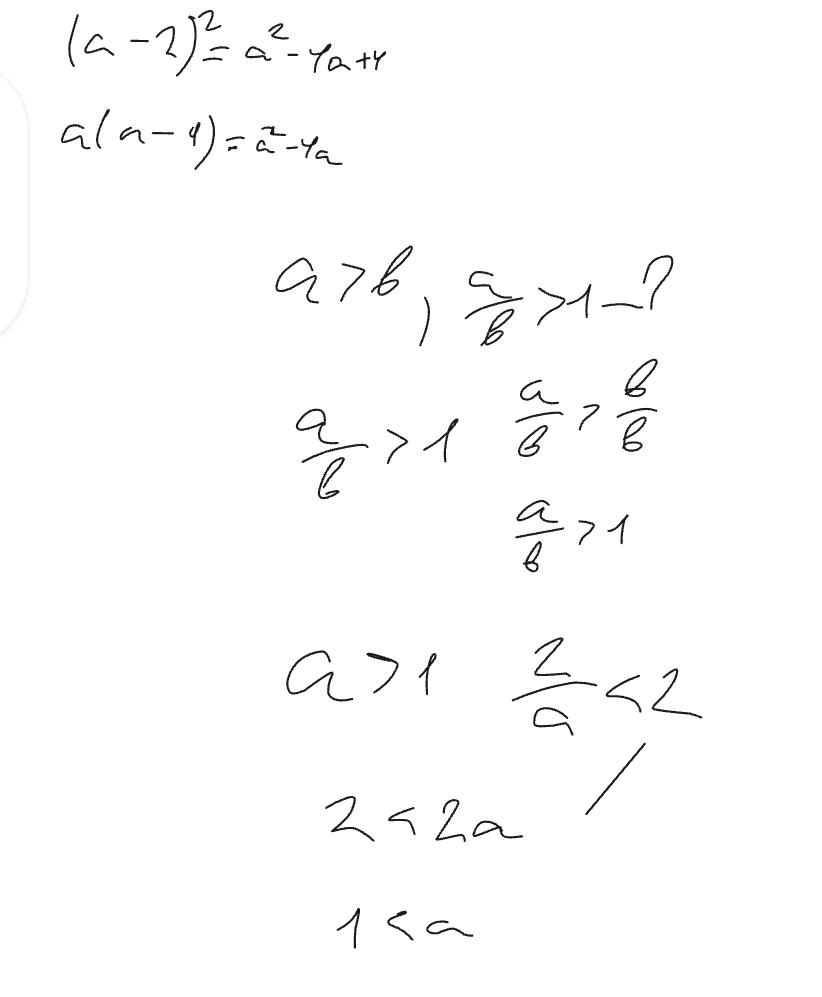 (a - 2)² = a² - 4a + 4
a(a - 4) = a² - 4a
a > b, a/b > 1 - ?
a/b > 1   a/b > b/b
a/b > 1
a > 1   2/a < 2
2 < 2a
1 < a